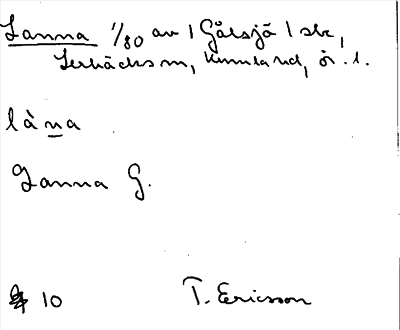 Lanna 1/80 av 1 Gålsjö 1 skr,
Lerbäcks sn, Kumla hd, ör. l.
làna
Lanna G.
10
T. Ericsson